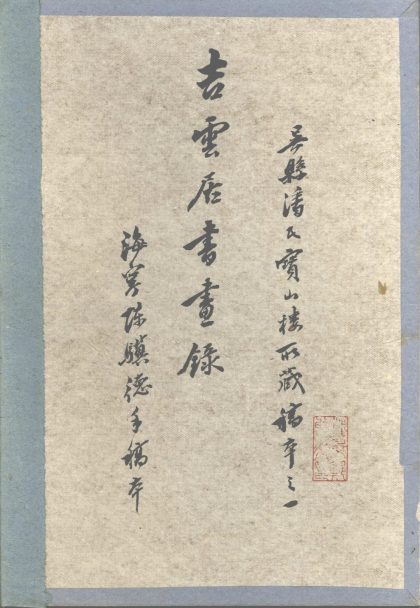 吳縣潘氏寶山樓所藏稿本之一
吉雲居書畫錄
海寧陳驥德手稿本